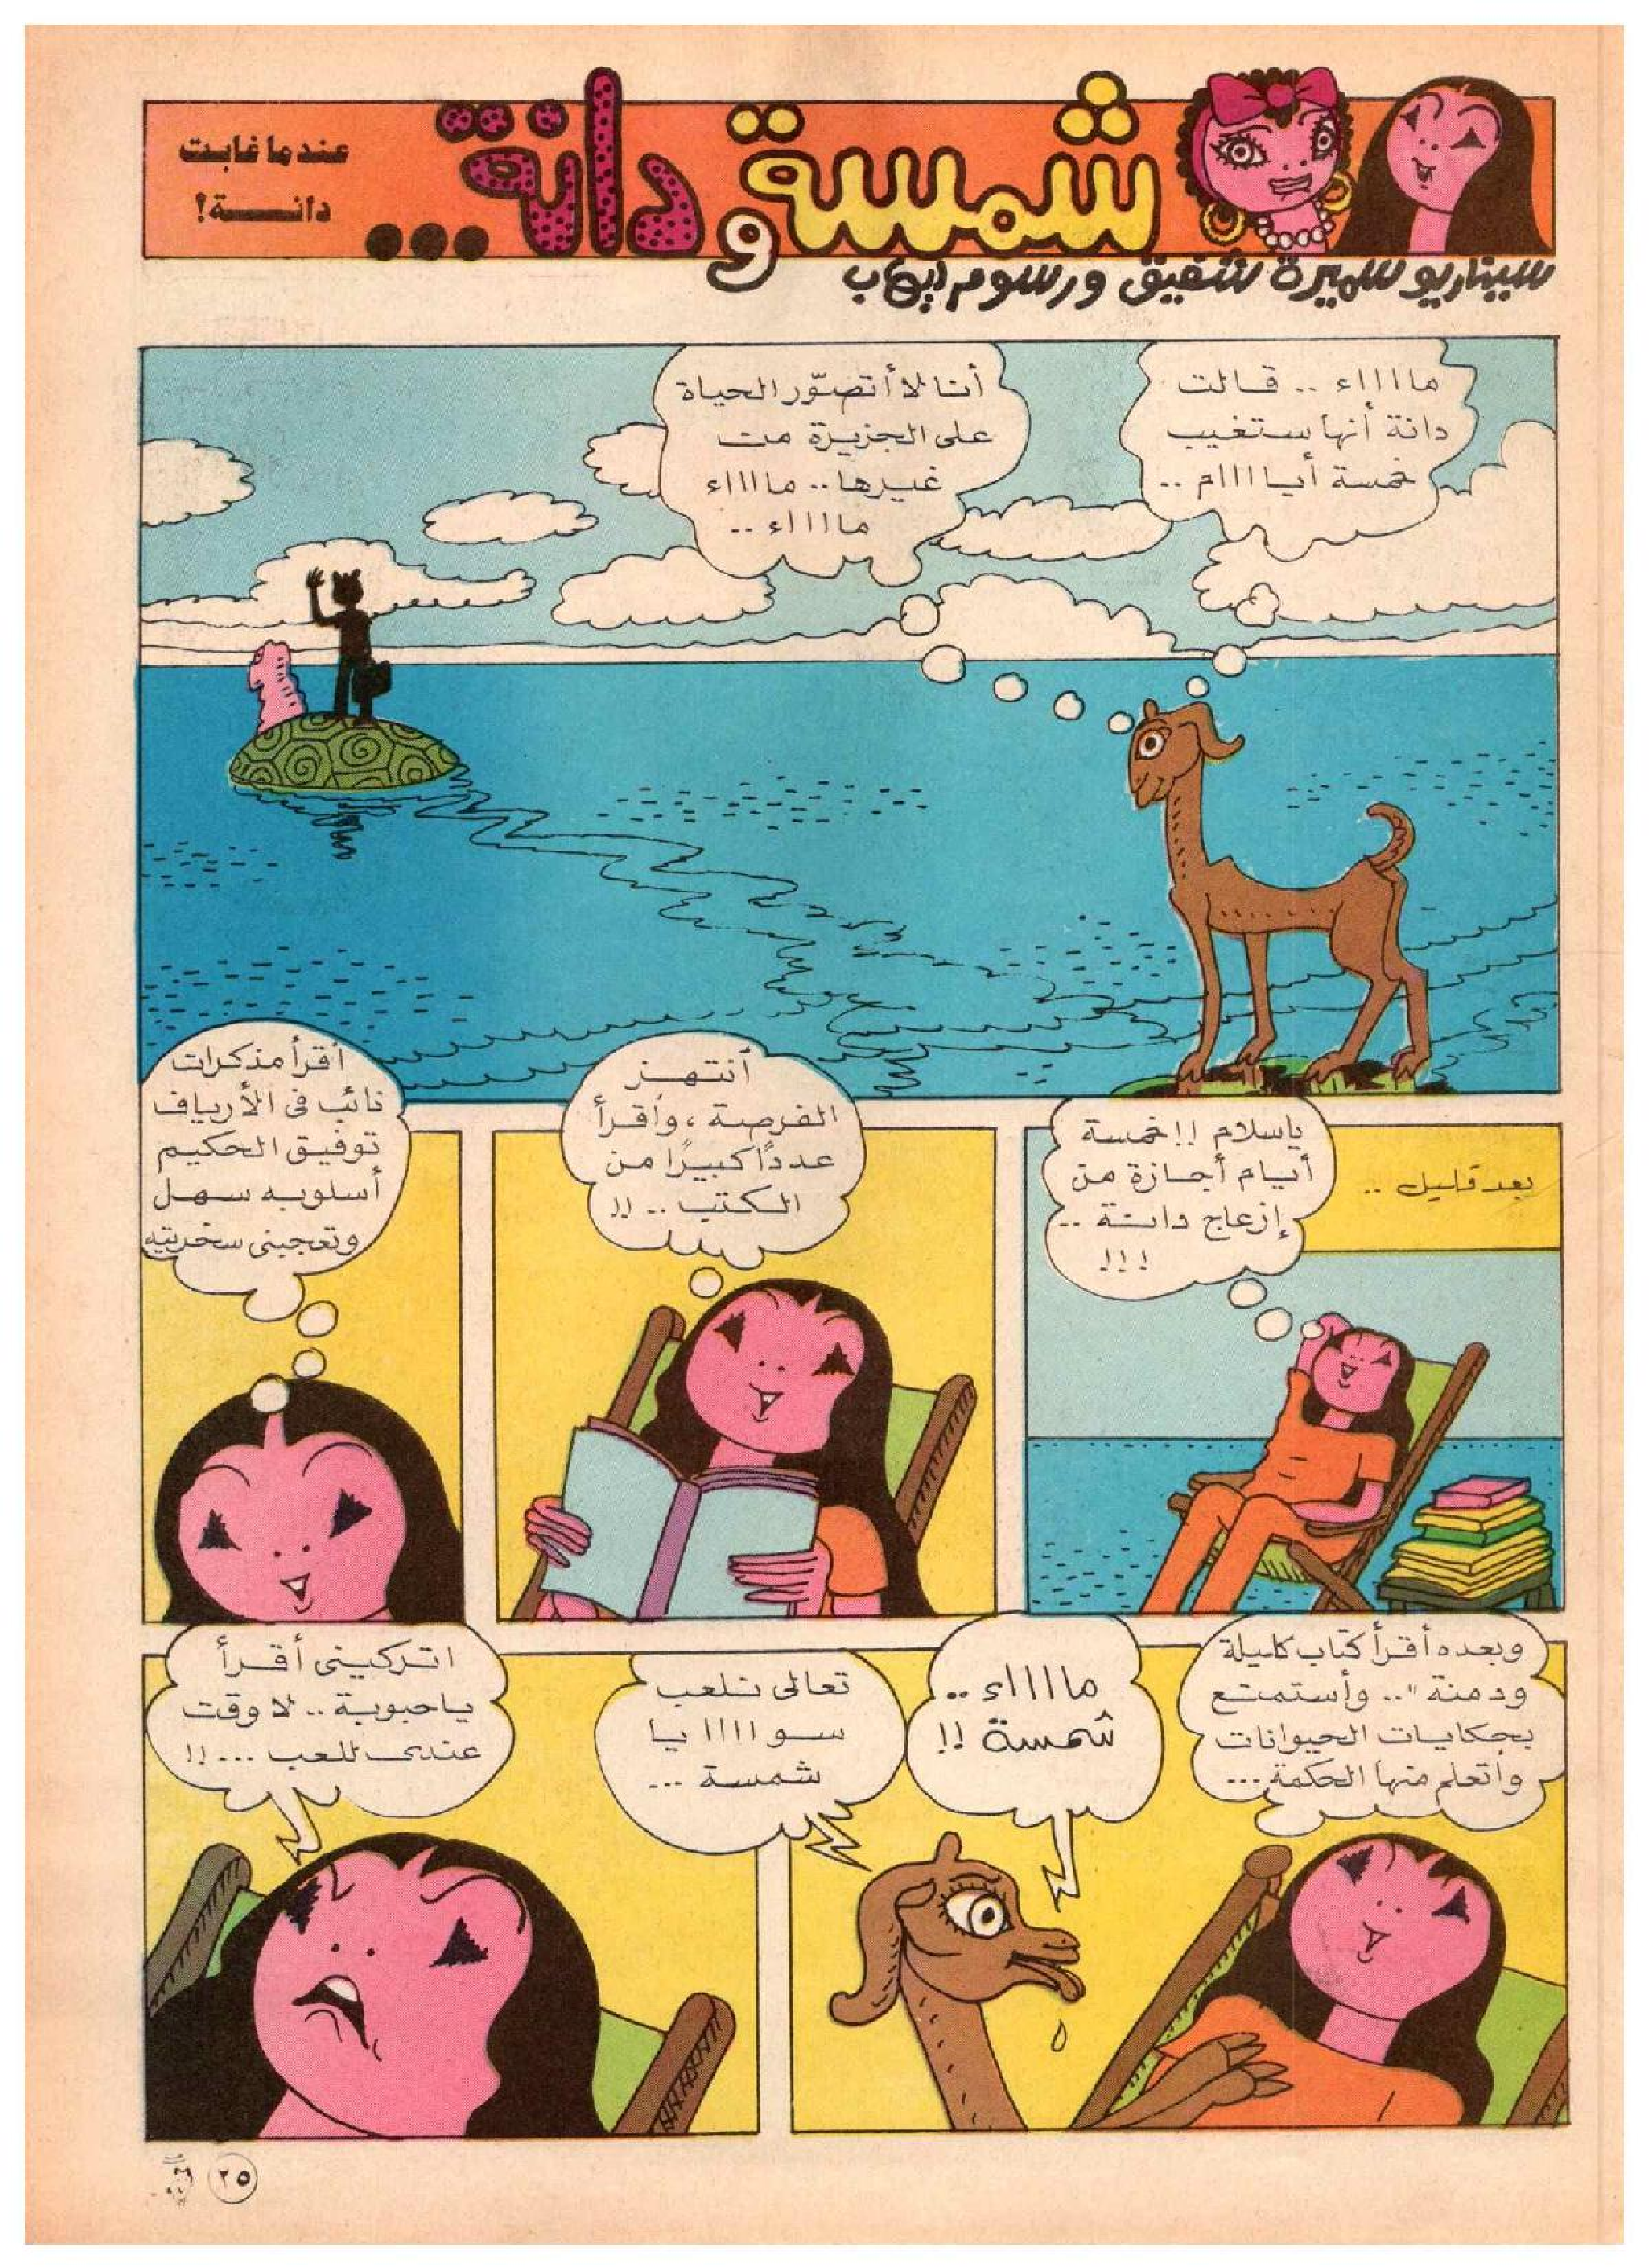 شمسة و دانة...
عندما غابت
دانــــة!
سيناريو سميرة شفيق ورسوم إيهاب
مااااء .. قالت
دانة أنها ستغيب
خمسة أيااااام ..
أنا لا أتصوّر الحياة
على الجزيرة من
غيرها .. مااااء
مااااء ..
بعد قليل ..
ياسلام !! خمسة
أيام أجازة من
إزعاج دانة ..
!!!
أنتهز
الفرصة ، وأقرأ
عددًا كبيرًا من
الكتب .. !!
أقرأ مذكرات
نائب في الأرياف
توفيق الحكيم
أسلوبه سهل
وتعجبنى سخريته
وبعده أقرأ كتاب كليلة
ودمنة" .. وأستمتع
بحكايات الحيوانات
وأتعلم منها الحكمة ...
مااااء ..
شمسة !!
تعالى نلعب
سواااا يا
شمسة ...
اتركينى أقرأ
ياحبوبة .. لا وقت
عندى للعب ... !!
٢٥